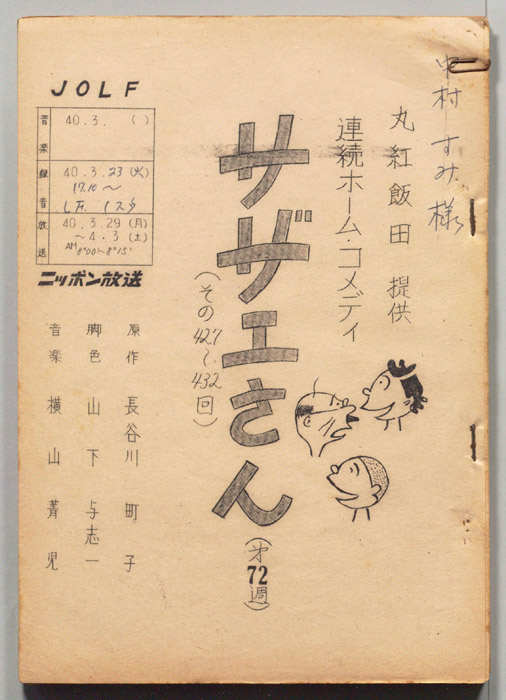 中村すみ様
丸紅飯田 提供
連続ホーム・コメディ
サザエさん
(その427〜432回)
(第72週)
JOLF
音楽 40.3. ( )
録音 40.3.23(火)
17.10〜
放送 40.3.29(月)
〜4.3(土)
AM 8°00〜8°15'
ニッポン放送
原作 長谷川町子
脚色 山下与志一
音楽 横山菁児